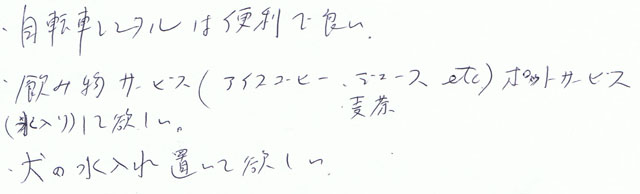 ・自転車レンタルは便利で良い。
・飲み物サービス(アイスコーヒー、ジュース etc)ポットサービス
麦茶
(氷入り)して欲しい。
・犬の水入れ置いて欲しい。